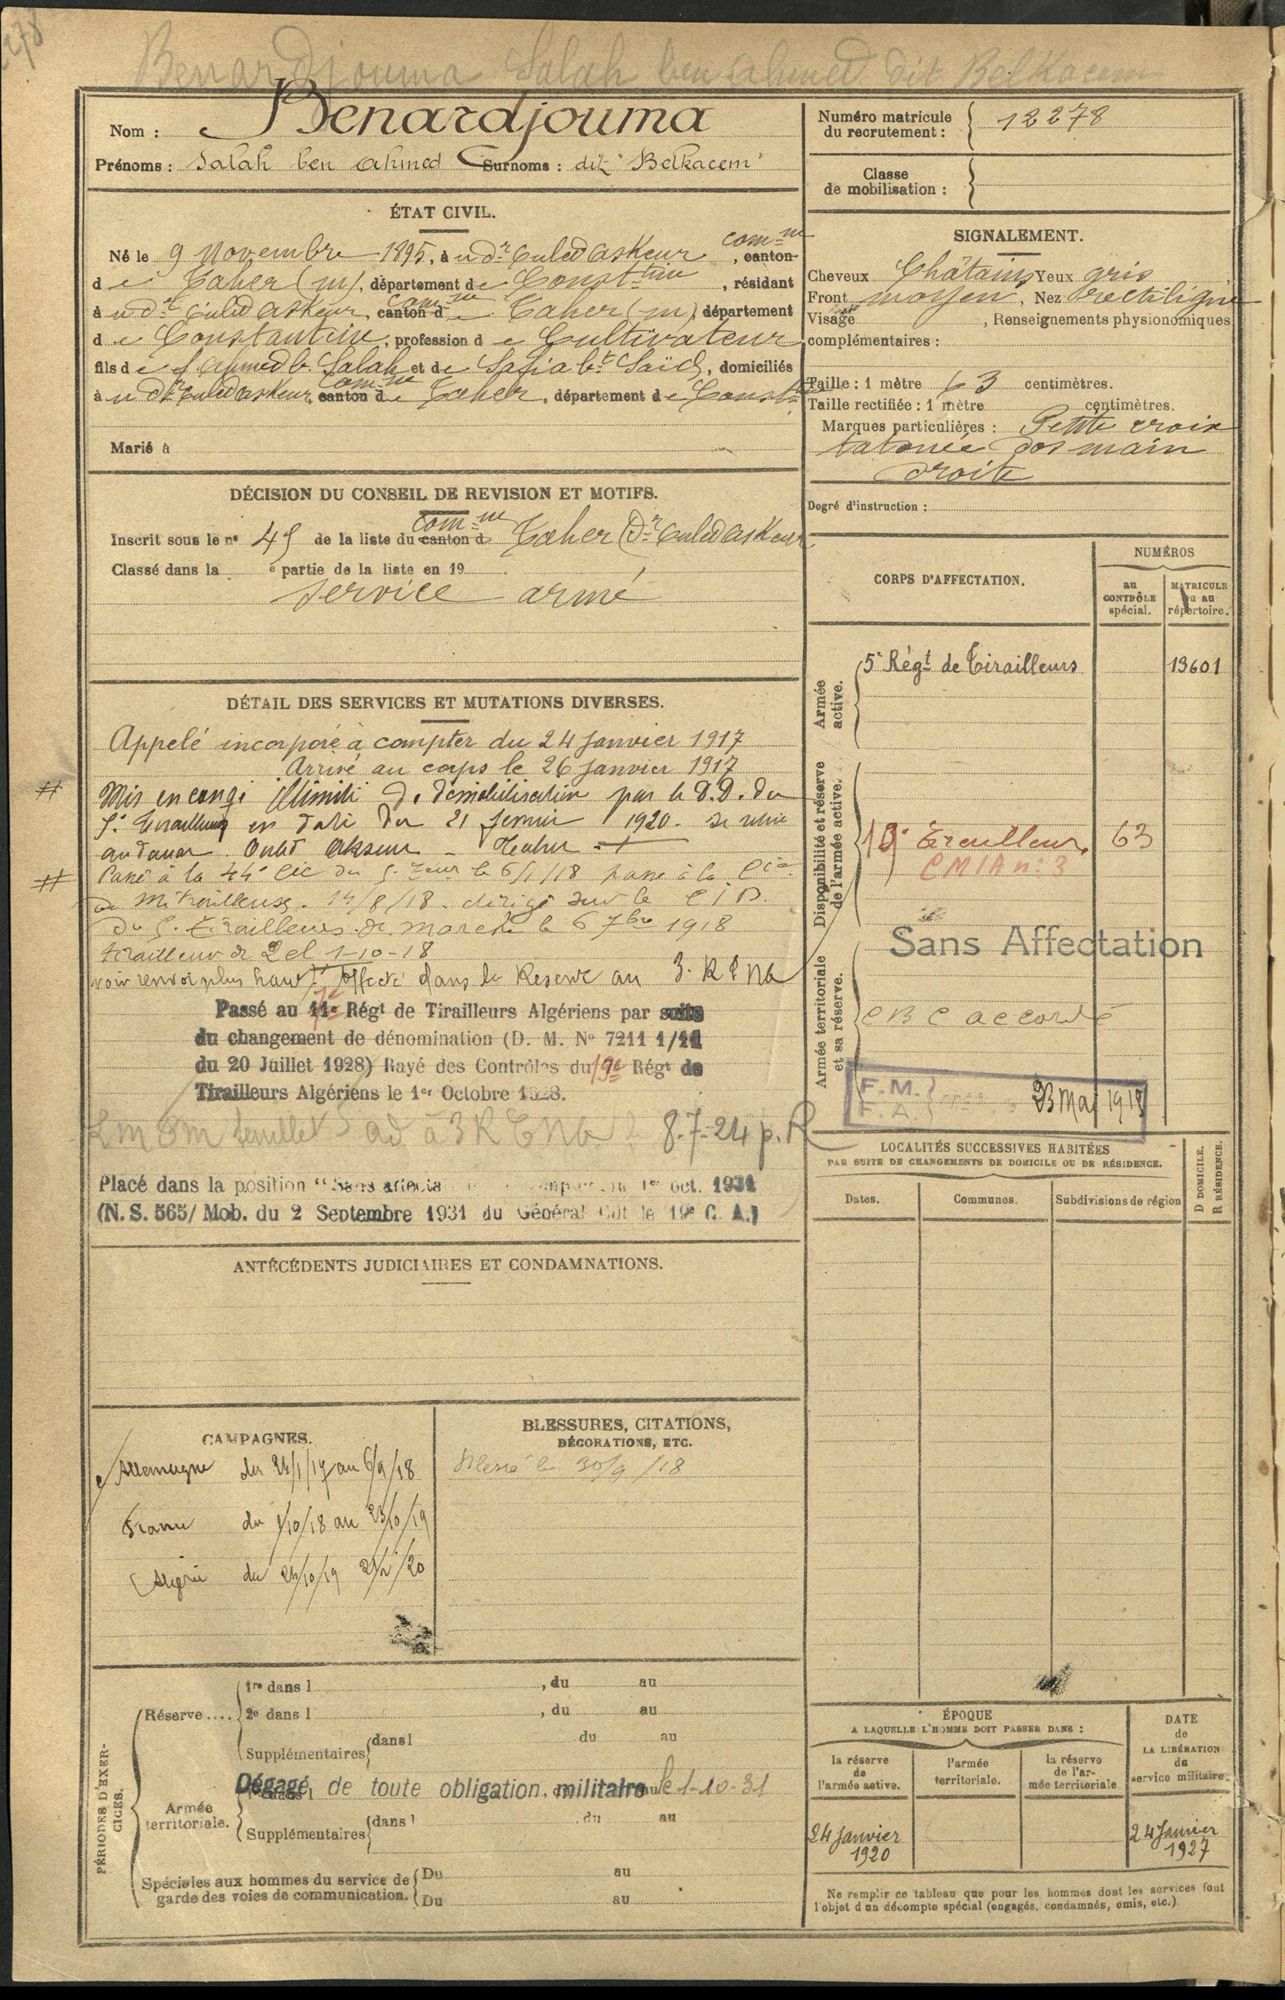 278
Benardjouma Salah ben Ahmed dit Belkacem
Nom : Benardjouma
Prénoms : Salah ben Ahmed Surnoms : dit "Belkacem"
ÉTAT CIVIL.
Né le 9 Novembre 1895, à u dr Ouled Askeur com=ne, canton
de Taher (m), département de Const=tine, résidant
à u dr Ouled Askeur, com=ne canton de Taher (m), département
de Constantine, profession de Cultivateur
fils de f Ahmed b. Salah et de Safia bt Saïd, domiciliés
à u dr Ouled Askeur, com=ne canton de Taher, département de Const=ne
Marié à
DÉCISION DU CONSEIL DE REVISION ET MOTIFS.
Inscrit sous le n° 45 de la liste du com=ne canton de Taher (Dr Ouled Askeur
Classé dans la e partie de la liste en 19 .
Service armé
DÉTAIL DES SERVICES ET MUTATIONS DIVERSES.
Appelé incorporé à compter du 24 Janvier 1917
Arrivé au corps le 26 Janvier 1917
# Mis en congé illimité de démobilisation par le D.D. du
5e Tirailleurs en date du 21 1920. se retire
au douar Ouled Askeur - Taher
# Passé à la 44e Cie du 5e le 6/1/18 passé à la Cie
de Mitrailleuses. 14/8/18. dirigé sur le CID
du 5e Tirailleurs de marche le 6 7bre 1918
tirailleur de 2e cl 1-10-18
voir renvoi plus haut # Affecté dans la Réserve au 3. R T NA
Passé au 11e Régt de Tirailleurs Algériens par suite
du changement de dénomination (D. M. No 7211 1/11
du 20 Juillet 1928) Rayé des Contrôles du 19e Régt de
Tirailleurs Algériens le 1er Octobre 1928.
feuillet ad à 3 R T NA le 8-7-24 p. R
Placé dans la position "Sans affecta oct. 1931
(N. S. 565/ Mob. du 2 Septembre 1931 du Général Cdt le 19e C. A.)
ANTÉCÉDENTS JUDICIAIRES ET CONDAMNATIONS.
CAMPAGNES.
c/ Allemagne du 24/1/17 au 6/9/18
France du 1/10/18 au 23/10/19
Algérie du 24/10/19 /20
BLESSURES, CITATIONS,
DÉCORATIONS, ETC.
Blessé le 30/9/18
PÉRIODES D'EXER-
CICES.
Réserve ....
1re dans l , du au
2e dans l , du au
Supplémentaires dans l du au
Dégagé de toute obligation militaire le 1-10-31
Armée
territoriale.
Supplémentaires dans l du au
Spéciales aux hommes du service de
garde des voies de communication.
Du au
Du au
Numéro matricule
du recrutement : 12278
Classe
de mobilisation :
SIGNALEMENT.
Cheveux Châtains Yeux gris
Front moyen, Nez rectiligne
Visage , Renseignements physionomiques
complémentaires :
Taille : 1 mètre 63 centimètres.
Taille rectifiée : 1 mètre centimètres.
Marques particulières : Petite croix
tatouée dos main
droite
Degré d'instruction :
CORPS D'AFFECTATION.
NUMÉROS
au
CONTRÔLE
spécial.
MATRICULE
ou au
répertoire.
Armée
active.
5e Régt de Tirailleurs 13601
Disponibilité et réserve
de l'armée active.
19e Tirailleurs 63
CMIA n° 3
Sans Affectation
Armée territoriale
et sa réserve.
CBC accordé
F.M.
F.A.
23 Mai 1918
LOCALITÉS SUCCESSIVES HABITÉES
PAR SUITE DE CHANGEMENTS DE DOMICILE OU DE RÉSIDENCE.
D DOMICILE.
R RÉSIDENCE.
Dates.
Communes.
Subdivisions de région
ÉPOQUE
A LAQUELLE L'HOMME DOIT PASSER DANS :
DATE
de
LA LIBÉRATION
du
service militaire.
la réserve
de
l'armée active.
l'armée
territoriale.
la réserve
de l'ar-
mée territoriale
24 Janvier
1920
24 Janvier
1927
Ne remplir ce tableau que pour les hommes dont les services font
l'objet d'un décompte spécial (engagés, condamnés, omis, etc.).